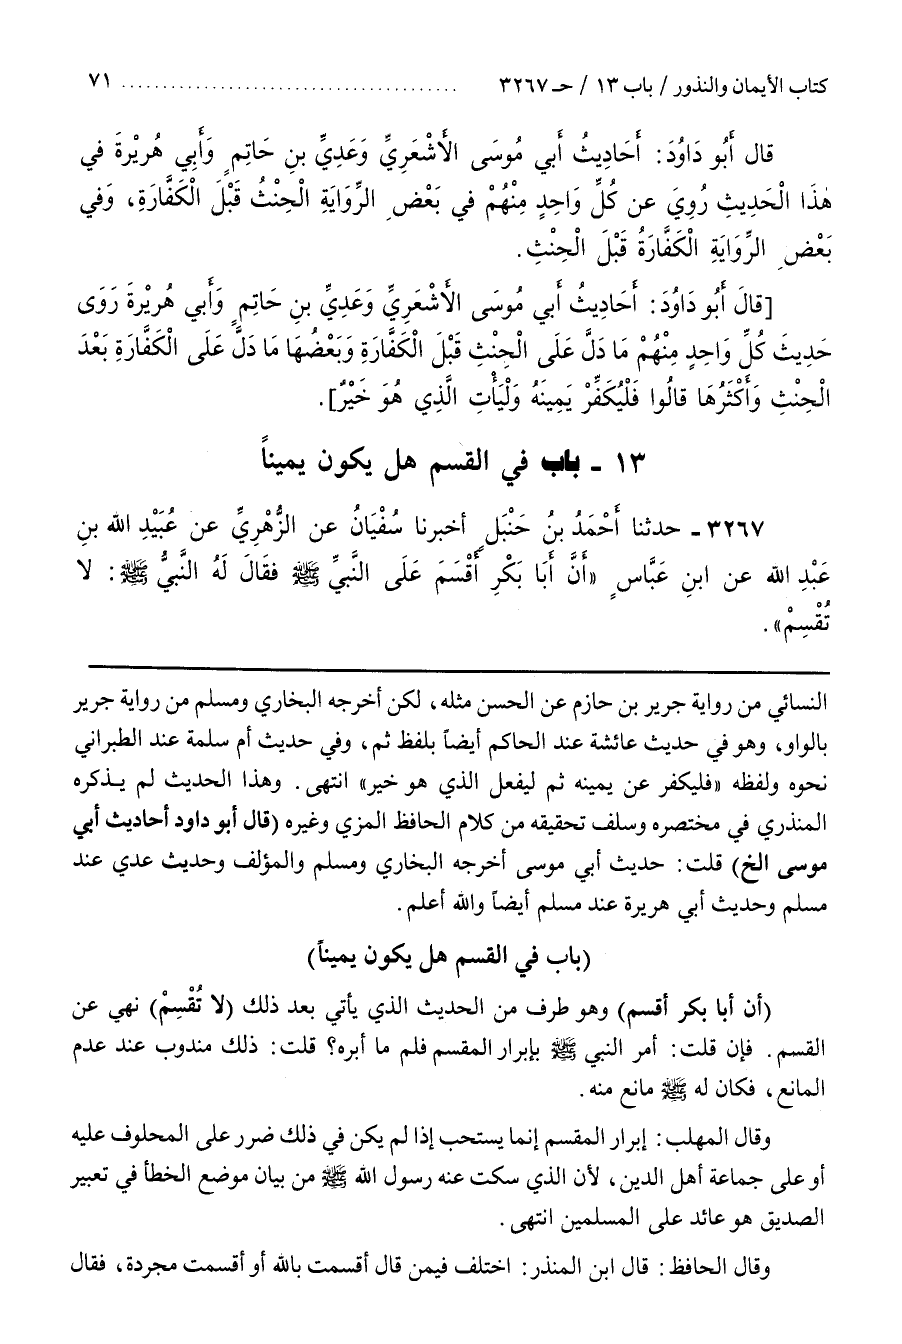 كتاب الأيمان والنذور / باب ١٣ / حـ ٣٢٦٧ ..................................... ٧١
قال أَبُو دَاوُدَ: أَحَادِيثُ أَبي مُوسَى الأَشْعَرِيِّ وَعَدِيِّ بنِ حَاتِمٍ وَأَبِي هُرِيْرةَ في
هٰذَا الْحَدِيثِ رُوِيَ عن كُلِّ وَاحِدٍ مِنْهُمْ في بَعْضِ الرِّوَايَةِ الْحِنْثُ قَبْلَ الْكَفَّارَةِ، وَفي
بَعْضِ الرِّوَايَةِ الْكَفَّارَةُ قَبْلَ الْحِنْثِ.
[قالَ أَبُو دَاوُدَ: أَحَادِيثُ أَبي مُوسَى الأَشْعَرِيِّ وَعَدِيِّ بنِ حَاتِمٍ وَأَبي هُرِيْرةَ رَوَى
حَدِيثَ كُلِّ وَاحِدٍ مِنْهُمْ مَا دَلَّ عَلَى الْحِنْثِ قَبْلَ الْكَفَّارَةِ وَبَعْضُهَا مَا دَلَّ عَلَى الْكَفَّارَةِ بَعْدَ
الْحِنْثِ وَأَكْثَرُهَا قالُوا فَلْيُكَفِّرْ يَمِينَهُ وَلْيَأْتِ الَّذِي هُوَ خَيْرٌ].
١٣ - باب في القسم هل يكون يميناً
٣٢٦٧ - حدثنا أَحْمَدُ بنُ حَنْبَلٍ أخبرنا سُفْيَانُ عن الزُّهْرِيِّ عن عُبَيْدِ الله بنِ
عَبْدِ الله عن ابنِ عَبَّاسٍ «أَنَّ أَبَا بَكْرٍ أَقْسَمَ عَلَى النَّبِيِّ ﷺ فقَالَ لَهُ النَّبيُّ ﷺ: لا
تُقْسِمْ».
النسائي من رواية جرير بن حازم عن الحسن مثله، لكن أخرجه البخاري ومسلم من رواية جرير
بالواو، وهو في حديث عائشة عند الحاكم أيضاً بلفظ ثم، وفي حديث أم سلمة عند الطبراني
نحوه ولفظه «فليكفر عن يمينه ثم ليفعل الذي هو خير» انتهى. وهذا الحديث لم يذكره
المنذري في مختصره وسلف تحقيقه من كلام الحافظ المزي وغيره (قال أبو داود أحاديث أبي
موسى الخ) قلت: حديث أبي موسى أخرجه البخاري ومسلم والمؤلف وحديث عدي عند
مسلم وحديث أبي هريرة عند مسلم أيضاً والله أعلم.
(باب في القسم هل يكون يميناً)
(أن أبا بكر أقسم) وهو طرف من الحديث الذي يأتي بعد ذلك (لا تُقْسِمْ) نهي عن
القسم. فإن قلت: أمر النبي ﷺ بإبرار المقسم فلم ما أبره؟ قلت: ذلك مندوب عند عدم
المانع، فكان له ﷺ مانع منه.
وقال المهلب: إبرار المقسم إنما يستحب إذا لم يكن في ذلك ضرر على المحلوف عليه
أو على جماعة أهل الدين، لأن الذي سكت عنه رسول الله ﷺ من بيان موضع الخطأ في تعبير
الصديق هو عائد على المسلمين انتهى.
وقال الحافظ: قال ابن المنذر: اختلف فيمن قال أقسمت بالله أو أقسمت مجردة، فقال